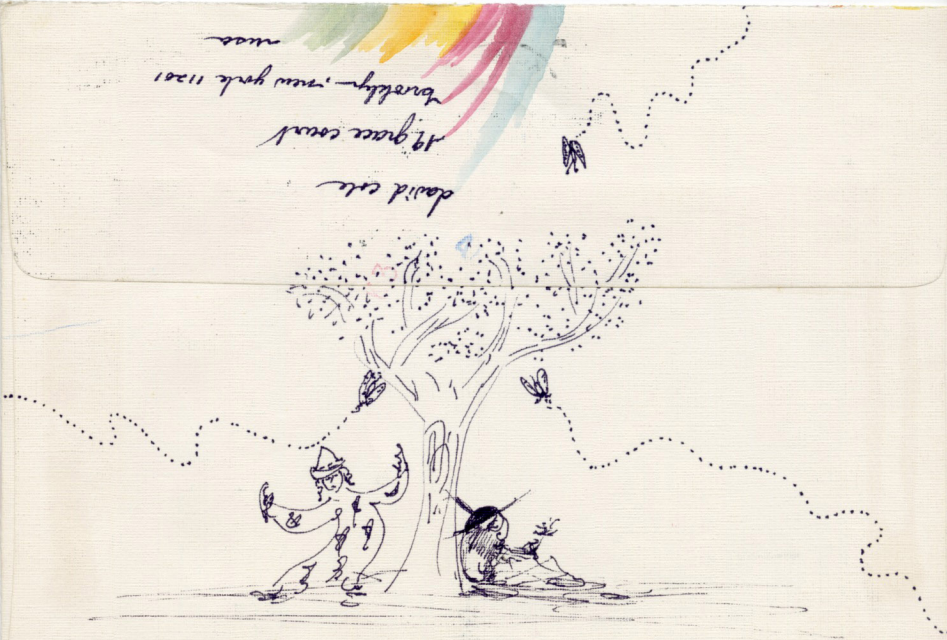 david cole
19 grace court
brooklyn - new york 11201
usa